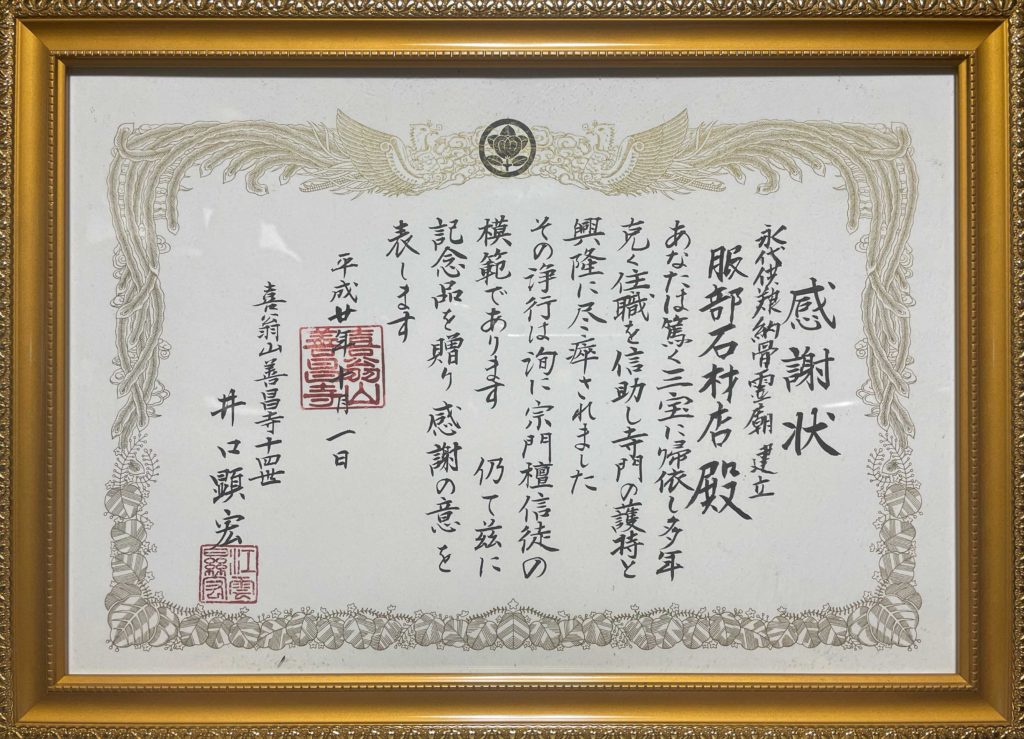 感謝状
永代供養納骨霊廟建立
服部石材店殿
あなたは篤く三宝に帰依し多年
克く住職を信助し寺門の護持と
興隆に尽瘁されました
その浄行は洵に宗門檀信徒の
模範であります 仍て茲に
記念品を贈り感謝の意を
表します
平成廿年十月一日
喜翁山善昌寺十四世
井口顕宏
喜翁山
善昌寺
江雲
顕宏